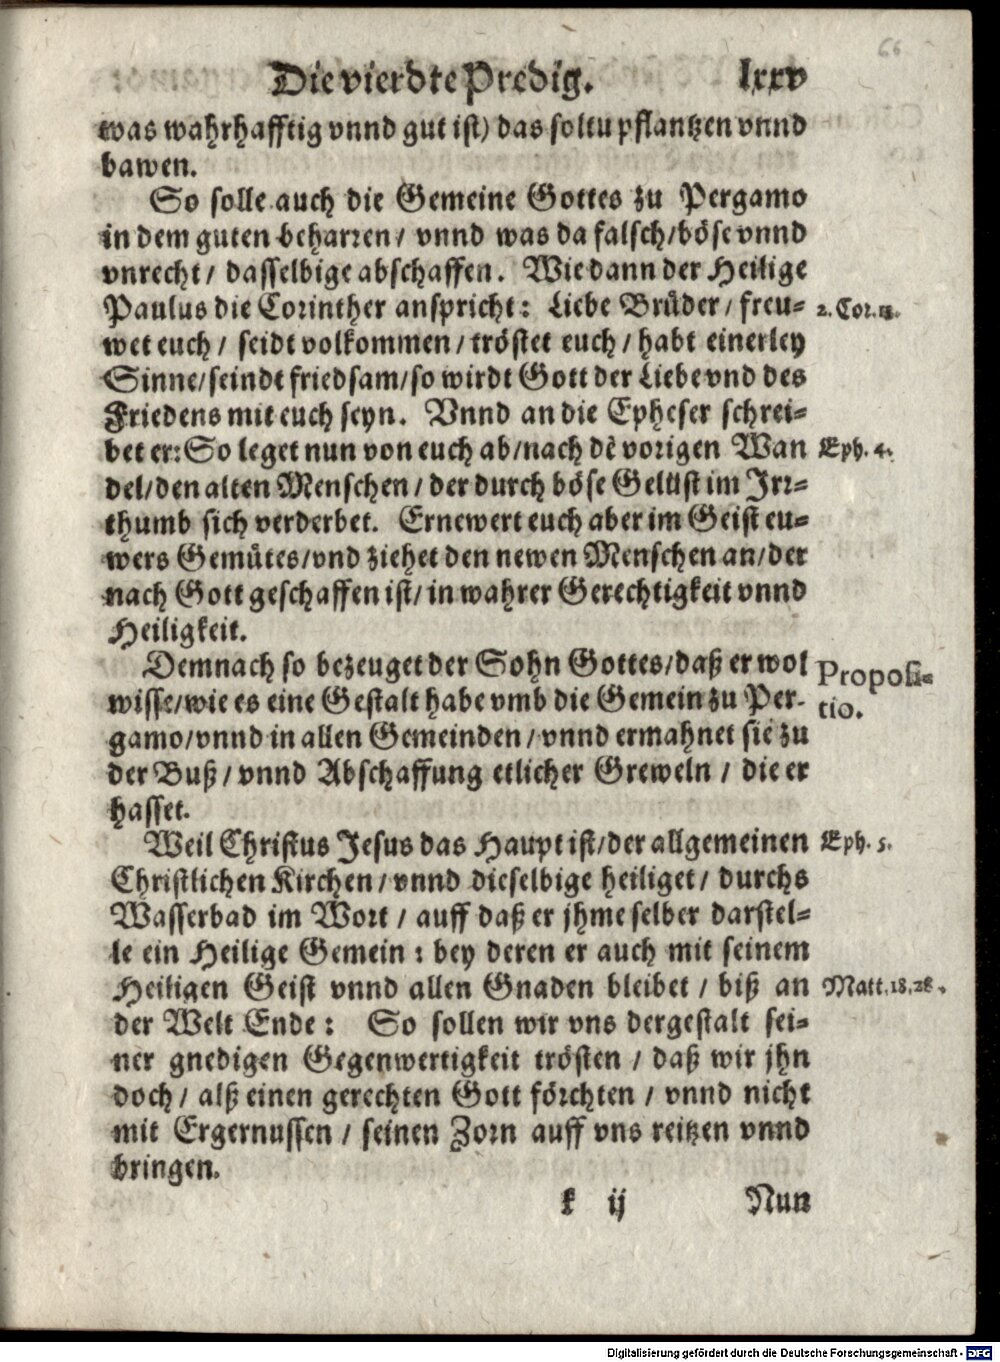 66
Die vierdte Predig. lxxv
was wahrhafftig vnnd gut ist) das soltu pflantzen vnnd
bawen.
So solle auch die Gemeine Gottes zu Pergamo
in dem guten beharren / vnnd was da falsch / böse vnnd
vnrecht / dasselbige abschaffen. Wie dann der Heilige
Paulus die Corinther anspricht: Liebe Brüder / freu- 2. Cor.
wet euch / seidt volkommen / tröstet euch / habt einerley
Sinne / seindt friedsam / so wirdt Gott der Liebe vnd des
Friedens mit euch seyn. Vnnd an die Epheser schrei-
bet er: So leget nun von euch ab / nach dē vorigen Wan Eph. 4.
del / den alten Menschen / der durch böse Gelüst im Irr-
thumb sich verderbet. Ernewert euch aber im Geist eu-
wers Gemütes / vnd ziehet den newen Menschen an / der
nach Gott geschaffen ist / in wahrer Gerechtigkeit vnnd
Heiligkeit.
Demnach so bezeuget der Sohn Gottes / daß er wol Proposi-
wisse / wie es eine Gestalt habe vmb die Gemein zu Per- tio.
gamo / vnnd in allen Gemeinden / vnnd ermahnet sie zu
der Buß / vnnd Abschaffung etlicher Greweln / die er
hasset.
Weil Christus Jesus das Haupt ist / der allgemeinen Eph. 5.
Christlichen Kirchen / vnnd dieselbige heiliget / durchs
Wasserbad im Wort / auff daß er jhme selber darstel-
le ein Heilige Gemein : bey deren er auch mit seinem
Heiligen Geist vnnd allen Gnaden bleibet / biß an Matt. 18. 28.
der Welt Ende : So sollen wir vns dergestalt sei-
ner gnedigen Gegenwertigkeit trösten / daß wir jhn
doch / alß einen gerechten Gott förchten / vnnd nicht
mit Ergernussen / seinen Zorn auff vns reitzen vnnd
bringen.
k ij Nun
Digitalisierung gefördert durch die Deutsche Forschungsgemeinschaft - DFG